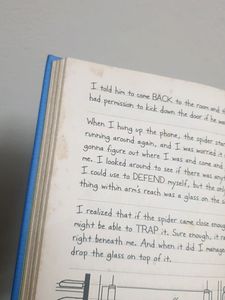 I told him to come BACK to the room and
had permission to kick down the door if he
When I hung up the phone, the spider
running around again, and I was worried it
gonna figure out where I was and come and
me. I looked around to see if there was
I could use to DEFEND myself, but the only
thing within arm's reach was a glass on the
I realized that if the spider came close
might be able to TRAP it. Sure enough, it
right beneath me. And when it did I
drop the glass on top of it.